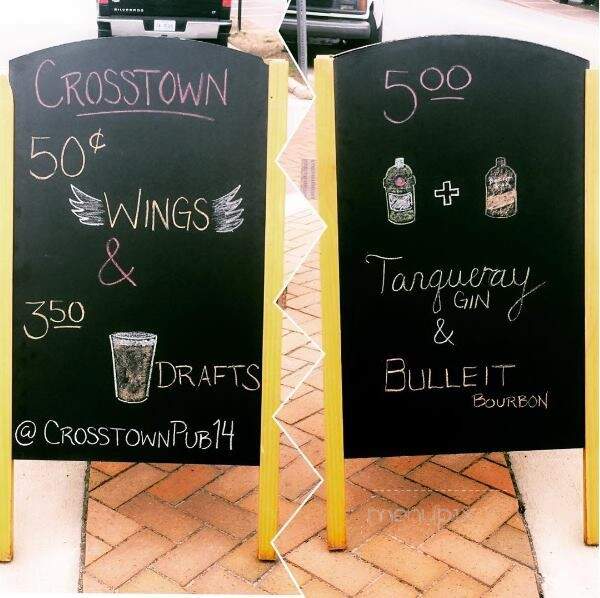 CROSSTOWN
50¢
WINGS
&
3 50
DRAFTS
@ CROSSTOWNPUB14
5 00
+
Tanqueray
GIN
&
BULLEIT
BOURBON
SILVERADO
menupix